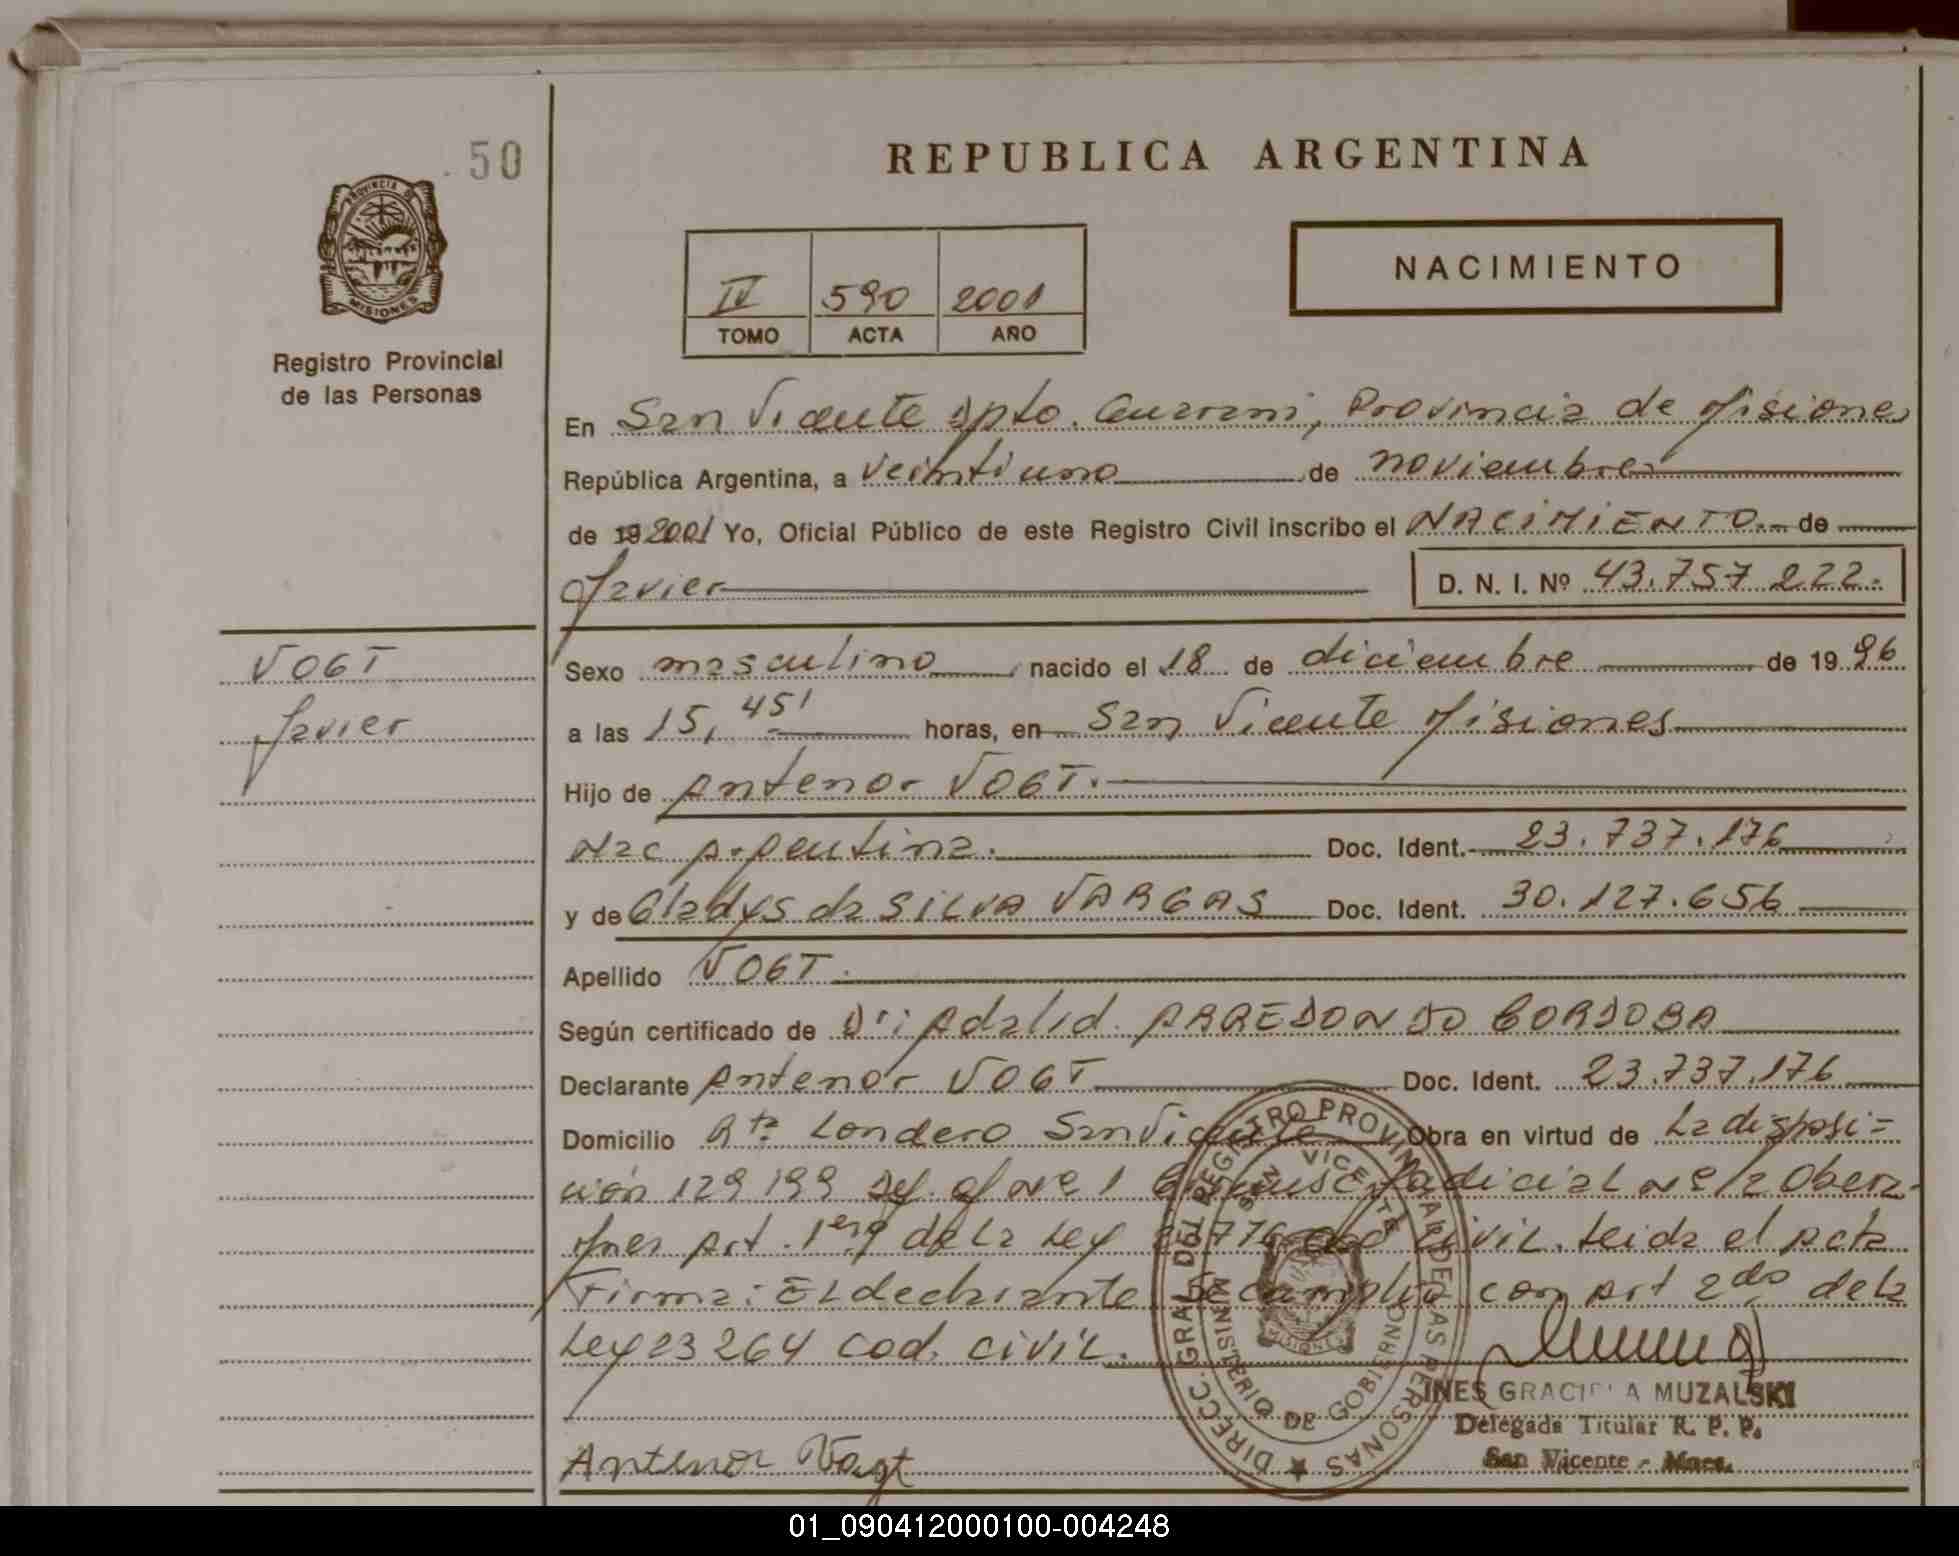 50
PROVINCIA DE
MISIONES
Registro Provincial
de las Personas
REPUBLICA ARGENTINA
IV 590 2001
TOMO ACTA AÑO
NACIMIENTO
En San Vicente Dpto. Guarani, Provincia de Misiones
República Argentina, a veintiuno de noviembre
de 19 2001 Yo, Oficial Público de este Registro Civil inscribo el NACIMIENTO de
Javier D. N. I. Nº 43.757.222.-
VOGT
Javier
Sexo masculino nacido el 18 de diciembre de 1996
a las 15,45' horas, en San Vicente Misiones
Hijo de Antenor VOGT.
Nac Argentina. Doc. Ident. 23.737.176
y de Gladys da SILVA VARGAS Doc. Ident. 30.127.656
Apellido VOGT.
Según certificado de Dr; Adalid ARREDONDO CORDOBA
Declarante Antenor VOGT Doc. Ident. 23.737.176
Domicilio Rta Londero San Vicente Obra en virtud de La disposi=
ción 129 199 Def. of Nº 1 Judicial Nº 2 Obera-
Mnes Art. 1ero de La Ley civil. Leida el Acta
Firma: EL declarante Se cumplio con Art 2do de La
Ley 23264 cod. civil.
Antenor Vogt
DIRECC. GRAL. DEL REGISTRO PROVINCIAL DE LAS PERSONAS
SAN VICENTE
MINISTERIO DE GOBIERNO
INES GRACIELA MUZALSKI
Delegada Titular R. P. P.
San Vicente - Mnes.
01_090412000100-004248